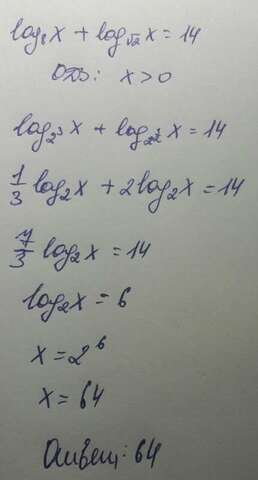 log₈x + log_√2 x = 14
ОДЗ: x > 0
log_2³ x + log_2^½ x = 14
1/3 log₂x + 2log₂x = 14
7/3 log₂x = 14
log₂x = 6
x = 2⁶
x = 64
Ответ: 64